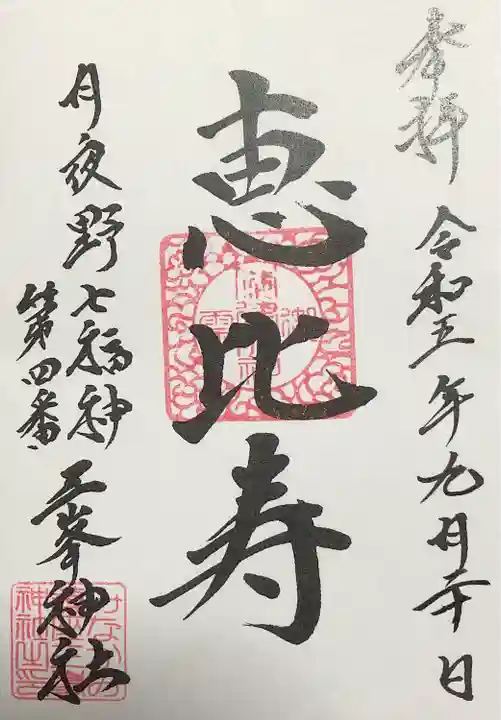 奉拝
令和五年九月二十日
恵比寿
月夜野七福神
第四番
三峯神社